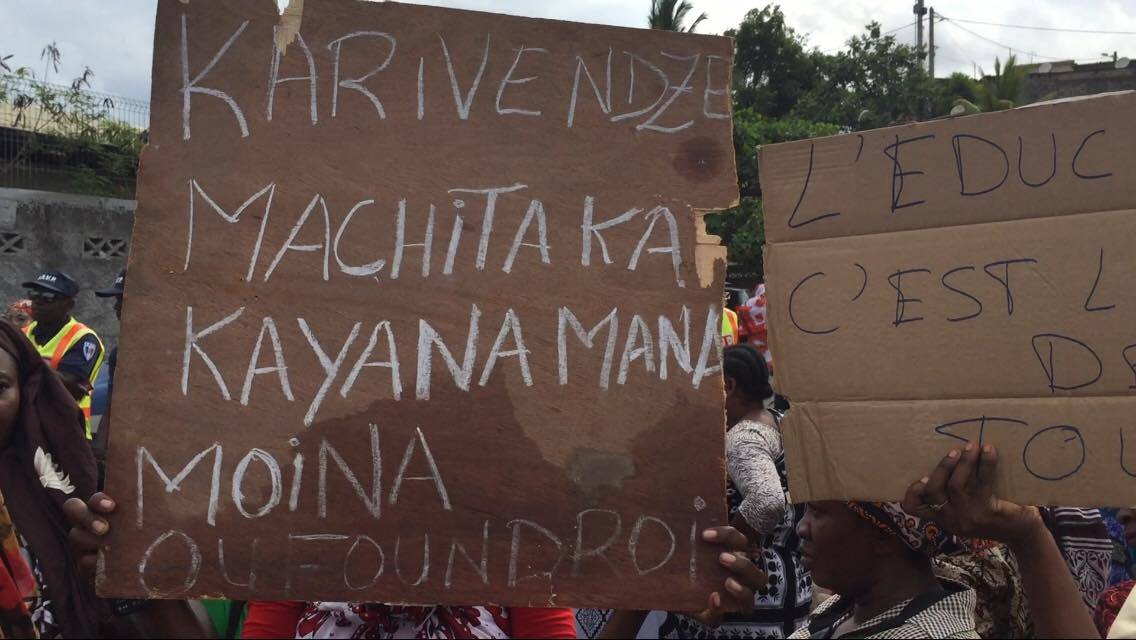 KARIVENDZE
MACHiTAKA
KAYANAMANA
MOiNA
OUFOUNDROi
L'EDUC
C'EST L
DE
TOU